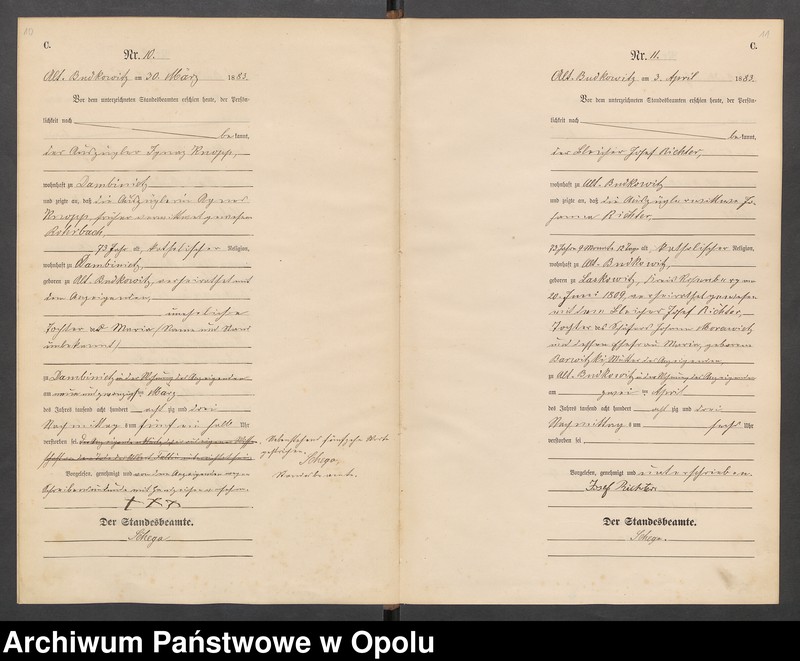 10
C.
Nr. 10.
Alt. Budkowitz am 30. März 1883.
Vor dem unterzeichneten Standesbeamten erschien heute, der Persön-
lichkeit nach
bekannt,
der Auszügler Ignaz Knopp,
wohnhaft zu Dambinietz
und zeigte an, daß die Auszüglerin Agnes
Knopp, früher verw. gewesene
Rohrbach,
73 Jahr alt, katholischer Religion,
wohnhaft zu Dambinietz,
geboren zu Alt. Budkowitz, verheirathet mit
dem Anzeigenden,
uneheliche
Tochter der Maria (Name und Stand
unbekannt)
zu Dambinietz in der Wohnung des Anzeigenden
am neun und zwanzigsten März
des Jahres tausend acht hundert achtzig und drei
Nachmittags um fünf ein halb Uhr
verstorben sei
Vorgelesen, genehmigt und von dem Anzeigenden wegen
Schreibensunkunde mit Handzeichen versehen.
+ X X
Der Standesbeamte.
Schega
Vorstehend fünfzehn Worte
gestrichen.
Schega
Standesbeamte.
11
C.
Nr. 11.
Alt. Budkowitz am 3. April 1883.
Vor dem unterzeichneten Standesbeamten erschien heute, der Persön-
lichkeit nach
bekannt,
der Bleicher Josef Richter,
wohnhaft zu Alt. Budkowitz
und zeigte an, daß die Auszüglerwittwe Jo-
hanna Richter,
73 Jahre 9 Monate 12 Tage alt, katholischer Religion,
wohnhaft zu Alt. Budkowitz,
geboren zu Laskowitz, Kreis Rosenberg am
20. Juni 1809, verheirathet gewesen
mit dem Bleicher Josef Richter,
Tochter des Schäfers Johann Morawietz
und dessen Ehefrau Maria, geborene
Barwitzki, Mutter des Anzeigenden,
zu Alt. Budkowitz in der Wohnung des Anzeigenden
am zwei ten April
des Jahres tausend acht hundert achtzig und drei
Nachmittags um sechs Uhr
verstorben sei
Vorgelesen, genehmigt und unterschrieben
Josef Richter
Der Standesbeamte.
Schega.
Archiwum Państwowe w Opolu